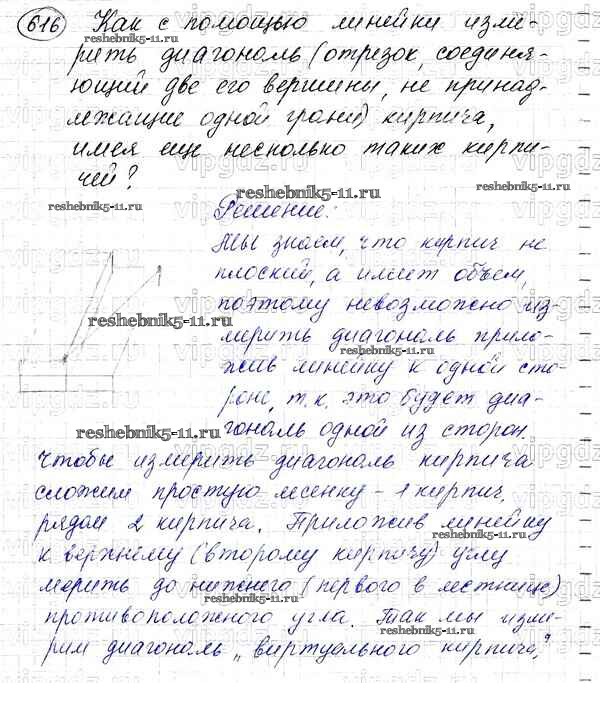 616 Как с помощью линейки изме-
рить диагональ (отрезок, соединя-
ющий две его вершины, не принад-
лежащие одной грани) кирпича,
имея еще несколько таких кирпи-
чей?
reshebnik5-11.ru
reshebnik5-11.ru
Решение:
Мы знаем, что кирпич не
плоский, а имеет объем,
поэтому невозможно из-
reshebnik5-11.ru
мерить диагональ прило-
reshebnik5-11.ru
жив линейку к одной сто-
роне, т.к. это будет диа-
reshebnik5-11.ru
гональ одной из сторон.
Чтобы измерить диагональ кирпича
сложим простую лесенку - 1 кирпич,
рядом 2 кирпича. Приложив линейку
reshebnik5-11.ru
к верхнему (второму кирпичу) углу
мерить до нижнего (первого в лестнице)
reshebnik5-11.ru
противоположного угла. Так мы изме-
reshebnik5-11.ru
рим диагональ „виртуального кирпича."
vipgdz